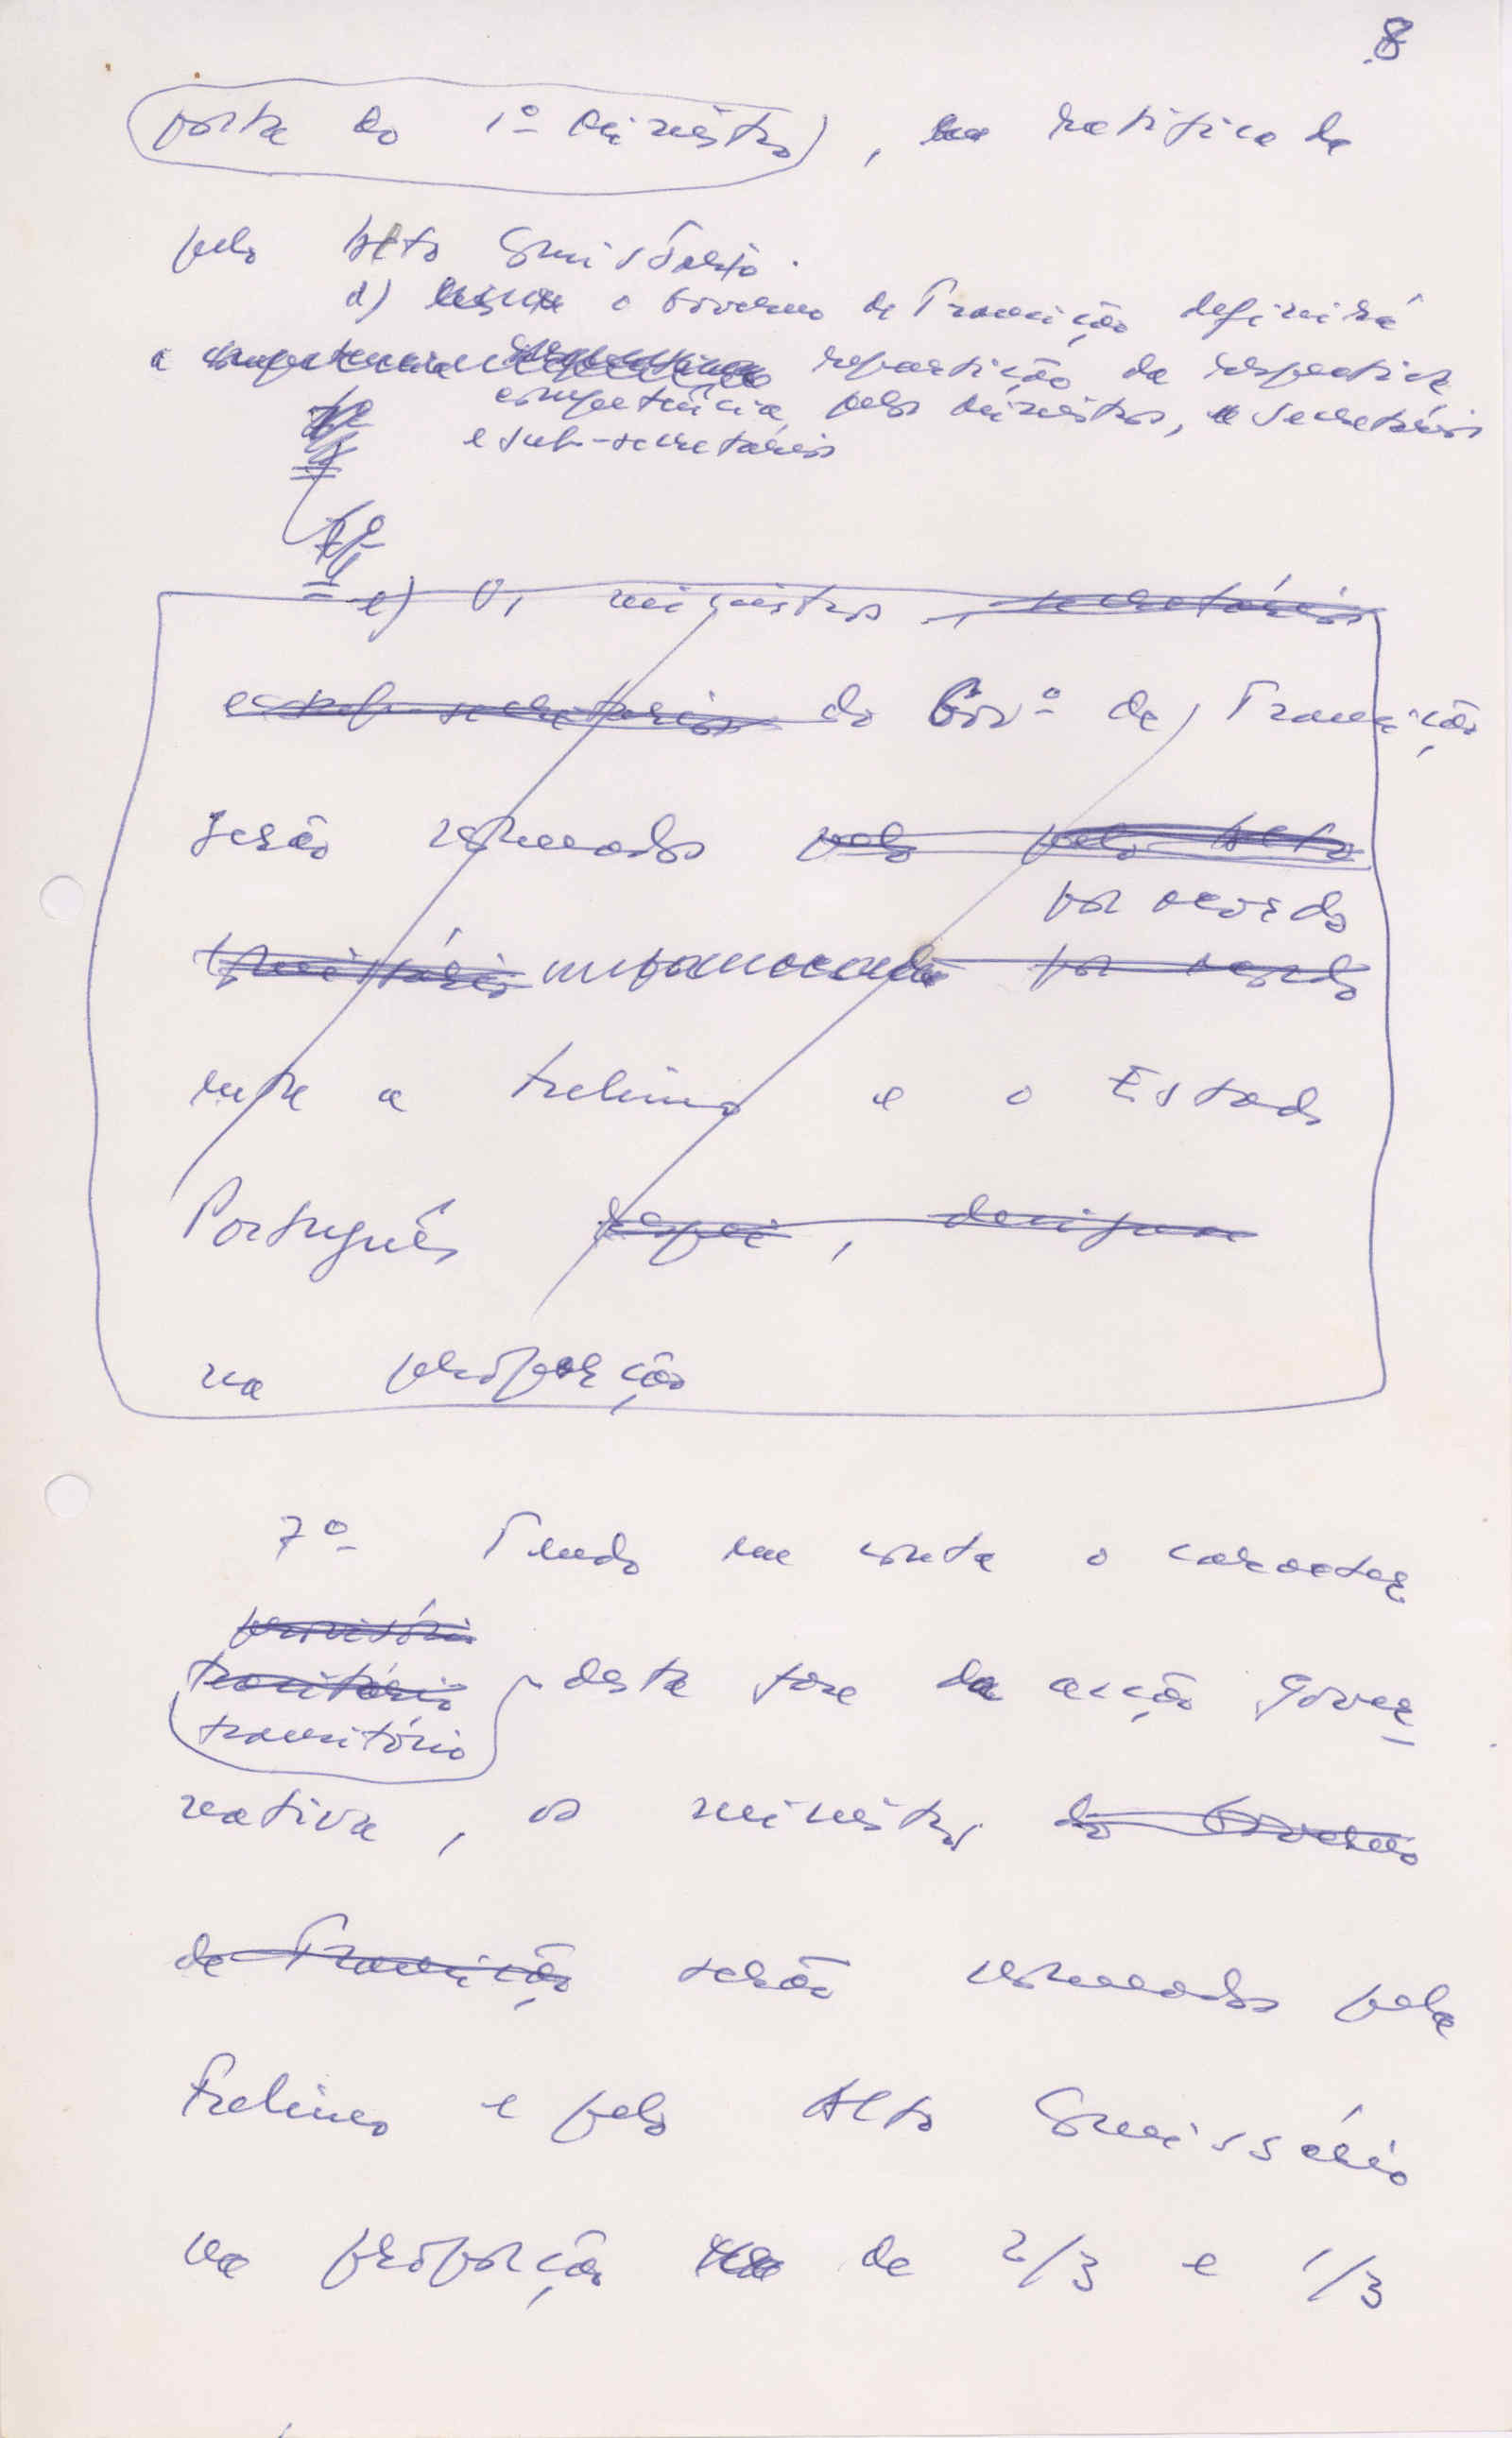 8
posta do 1º Ministro), ratificada
pelo Alto Comissário.
d) o Governo de Transição definirá
a repartição da respectiva
competência pelos Ministros, Secretários
e sub-secretários
e) Os ministros, secretários
e sub-secretários do Govº de Transição
serão nomeados pelo pelo Alto
por acordo
Comissário por acordo
entre a Frelimo e o Estado
Português , designa
na proporção
7º Tendo em conta o caracter
provisório
transitório
transitório desta fase da acção gover
nativa, os ministros do Governo
de Transição serão nomeados pela
Frelimo e pelo Alto Comissário
na proporção de 2/3 e 1/3